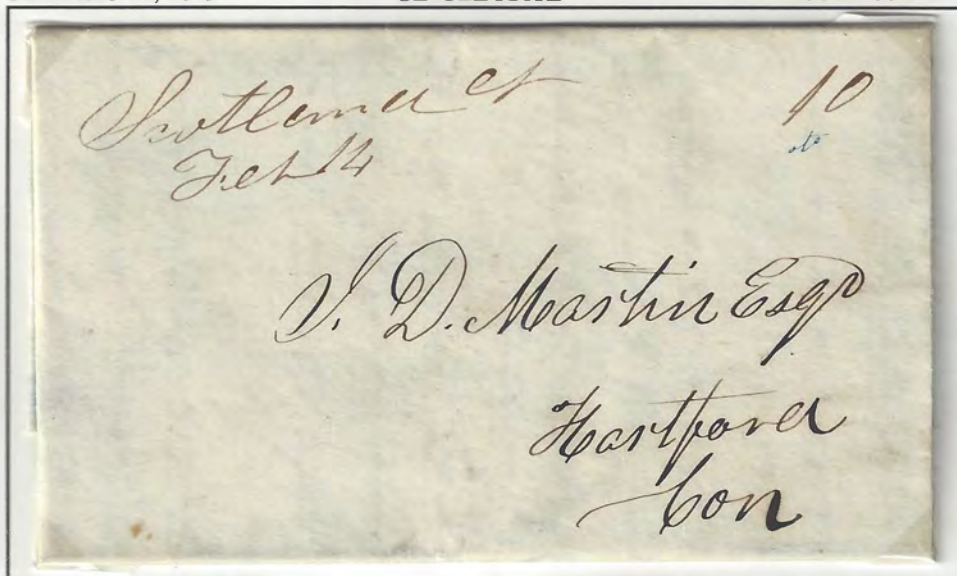 Scotland Ct
Feb 14
10
cts
J. D. Martin Esqr
Hartford
Con